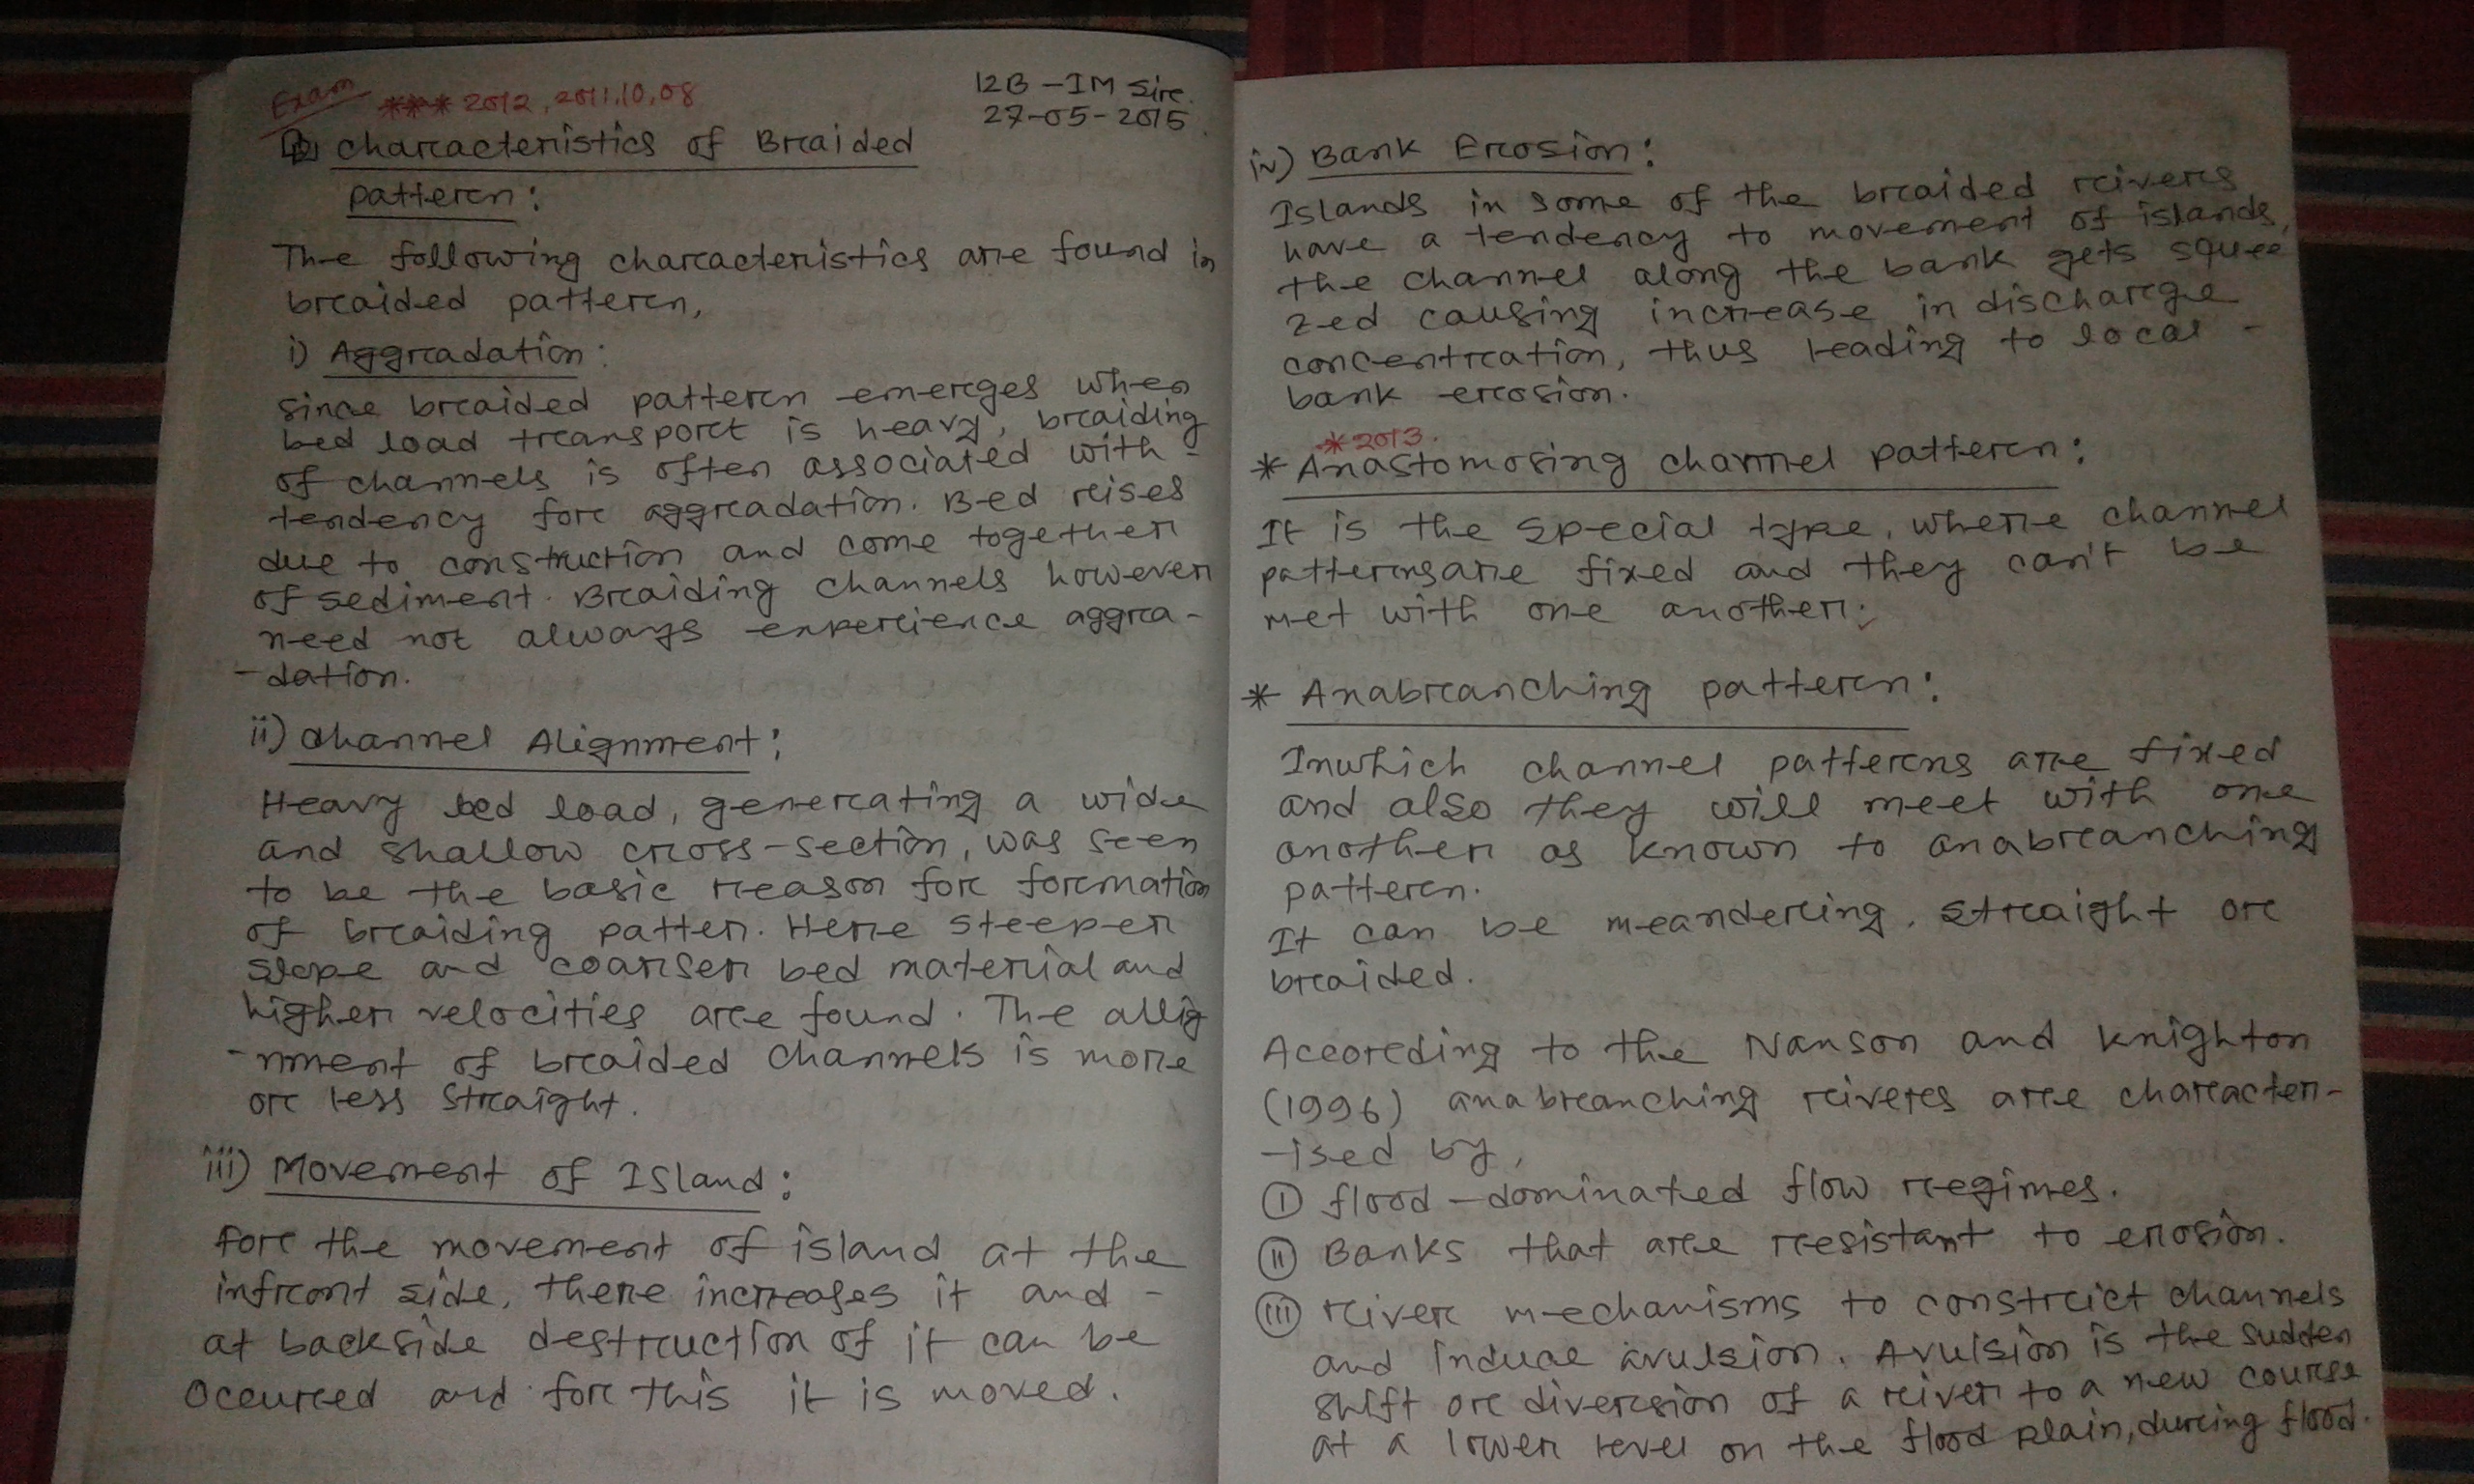 Exam *** 2012, 2011, 10, 08
12B - IM Sir.
27-05-2015
Characteristics of Braided
pattern:
The following characteristics are found in
braided pattern,
i) Aggradation:
Since braided pattern emerges when
bed load transport is heavy, braiding
of channels is often associated with -
tendency for aggradation. Bed rises
due to construction and come together
of sediment. Braiding channels however
need not always experience aggra-
-dation.
ii) Channel Alignment:
Heavy bed load, generating a wide
and shallow cross-section, was seen
to be the basic reason for formation
of braiding patter. Here steeper
slope and coarser bed material and
higher velocities are found. The allig
-nment of braided channels is more
or less straight.
iii) Movement of Island:
For the movement of island at the
infront side, there increases it and -
at backside destruction of it can be
occurred and for this it is moved.
iv) Bank Erosion:
Islands in some of the braided rivers
have a tendency to movement of islands,
the channel along the bank gets squee
zed causing increase in discharge
concentration, thus leading to local -
bank erosion.
* 2013.
* Anastomosing channel pattern:
It is the special type, where channel
patterns are fixed and they can't be
met with one another.
* Anabranching pattern:
Inwhich channel patterns are fixed
and also they will meet with one
another as known to anabranching
pattern.
It can be meandering, straight or
braided.
According to the Nanson and Knighton
(1996) anabranching rivers are character-
-ised by,
(I) flood-dominated flow regimes.
(II) Banks that are resistant to erosion.
(III) river mechanisms to constrict channels
and induce avulsion. Avulsion is the sudden
shift or diversion of a river to a new course
at a lower level on the flood plain, during flood.